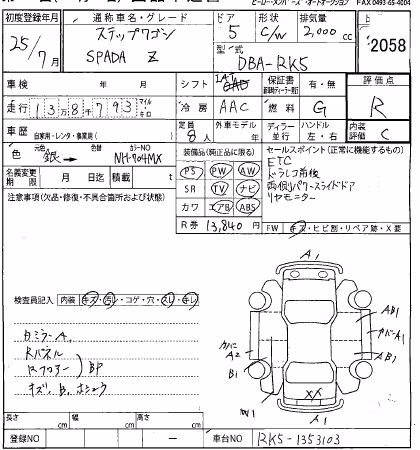 FAX 0493-65-4004
初度登録年月 通称車名・グレード ドア 形状 排気量
25/7月 ステップワゴン 5 C/W 2,000cc 2058
SPADA Z 型式 DBA-RK5
車検 年 月 シフト IAT 保証書 有・無 評価点
走行 13万8千793 マイル キロ 冷房 AAC 燃料 G R
車歴 自家用・レンタ・事業用( ) 定員 8人 外車モデル ディーラー 並行 ハンドル 左・右 内装評価 C
色 元色 銀 → 色替 カラーNO NH-704MX 装備品(純正品に限る) セールスポイント(正常に機能するもの)
名義変更期限 月 日迄 積載 t PS PW AW ETC
注意事項(欠品・修復・不具合箇所および状態) SR TV ナビ ドラレコ前後
カワ エアB ABS 両側パワースライドドア
R券 13,840円 リヤモニター
FW キズ・ヒビ割・リペア跡・X要
検査員記入 内装 キズ・汚レ・コゲ・穴・スレ・キレ
A1
AB1
Rパネル
カバー A2
バーA1
Rフロアー BP
B1
AB1
キズ、B、ホシュウ
W1
XX
A1
A1
長さ cm 幅 cm 高さ cm
登録NO — 車台NO RK5-1353103